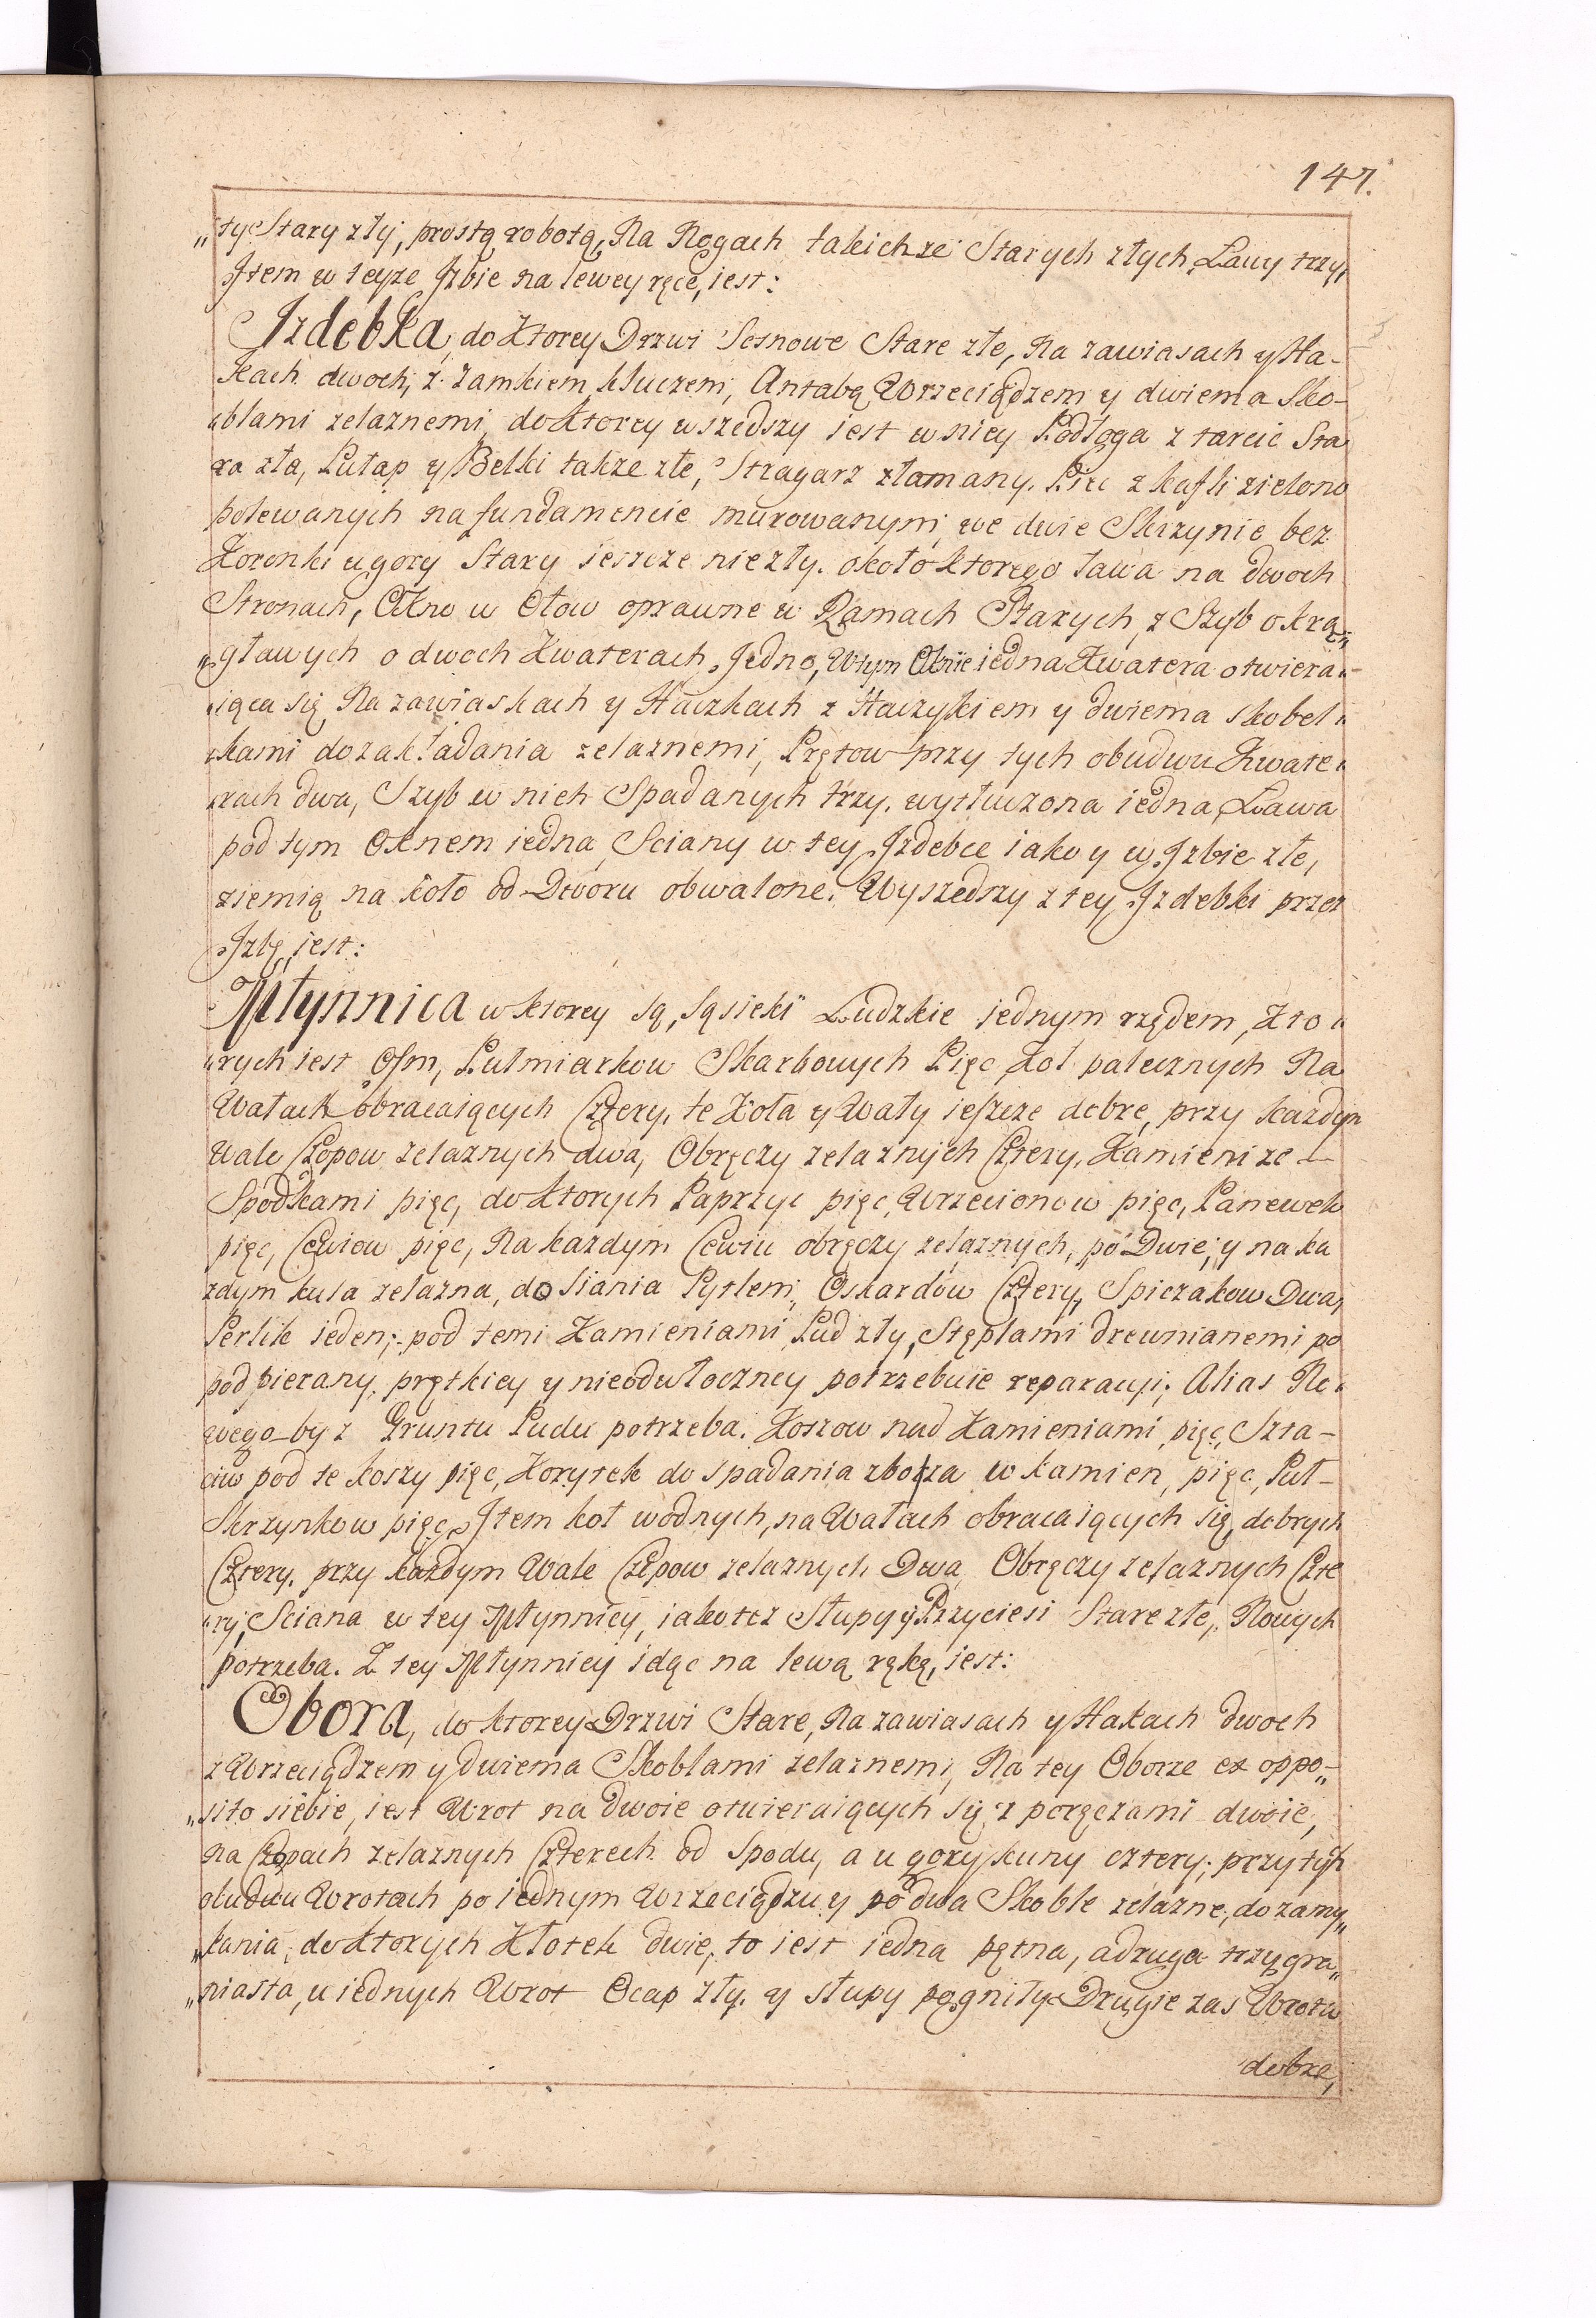 147.
„tyc Stary zły, prostą robotą, Na Nogach takichze Starych złych, Lawy trzy,
Jtem w teyze Jzbie na lewey ręce, iest:
Jzdebka, do Ktorey Drzwi Sosnowe Stare złe, Na zawiasach y Ha-
kach dwoch, z Zamkiem, kluczem, Antabą, Wrzeciądzem y dwiema Sko-
„blami zelaznemi, do Ktorey wszedszy iest w niey Podłoga z tarcic Sta
ra zła, Pułap y Belki takze złe, Stragarz złamany. Piec z kafli zielono
polewanych na fundamencie murowanym, we dwie Skrzynie bez
Koronki u gory Stary ieszcze niezły. około ktorego ława na dwoch
Stronach, Okno w Ołow oprawne w Ramach Starych, z Szyb okrą„
„gławych o dwoch Kwaterach, Jedno, W tym Oknie iedna Kwatera otwiera„
„iąca się Na zawiaskach y Haczkach z Haczykiem y dwiema skobel„
„kami do zakładania zelaznemi, Prętow przy tych obudwu Kwate„
„rach dwa, Szyb w nich Spadanych trzy. wytłuczona iedna, Ława
pod tym Oknem iedna, Sciany w tey Jzdebce iako y w Jzbie złe,
ziemią na koło od Dworu obwalone. Wyszedszy z tey Jzdebki przez
Jzbę, iest:
Młynnica w ktorey są, Sąsieki Ludzkie iednym rzędem, Kto„
„rych iest Ośm, Pułmiarkow Skarbowych Pięc, Koł palecznych Na
Wałach obracaiących Cztery, te Koła y Wały ieszcze dobre, przy kazdym
Wale Czopow zelaznych dwa, Obręczy zelaznych Cztery, Kamieni ze
Spodkami pięc, do Ktorych Paprzyc pięc, Wrzecionow pięc, Panewek
pięc, Cewiow pięc, Na kazdym Cewiu obręczy zelaznych, po Dwie, y na ka
zdym kula zelazna, do siania Pytlem, Oskardów Cztery, Spiczakow Dwa,
Perlik ieden; pod temi Kamieniami Pud zły, Stęplami drewnianemi po
podpierany. prętkiey y nieodwłoczney potrzebuie reparacyi. Alias No„
wego by z Gruntu Pudu potrzeba. Koszow nad Kamieniami pięc, Szta-
ciw pod te koszy pięc, Korytek do spadania zboza w kamien, pięc, Puł-
Skrzynkow pięc, Jtem koł wodnych, na Wałach obracaiących się, dobrych
Cztery. przy kazdym Wale Czopow zelaznych Dwa, Obręczy zelaznych Czte
„ry, Sciana w tey Młynnicy, iako tez Słupy y Przyciesi Stare złe, Nowych
potrzeba. Z tey Młynnicy idąc na lewą ręką, iest:
Obora, do ktorey Drzwi Stare, Na zawiasach y Hakach dwoch
z Wrzeciądzem y dwiema Skoblami zelaznemi, Na tey Oborze ex oppo„
„sito siebie, iest Wrot na dwoie otwieraiących się, z poręczami dwoie,
na Czopach zelaznych Czterech od Spodu, a u gory kuny cztery; przy tych
obudwu Wrotach po iednym Wrzeciądzu y po dwa Skoble zelazne, do zamy„
„kania, do Ktorych Kłotek dwie, to iest iedna pętna, a druga trzygra„
„niasta, u iednych Wrot Ocap zły. y słupy pogniły. Drugie zas Wrota
dobre,